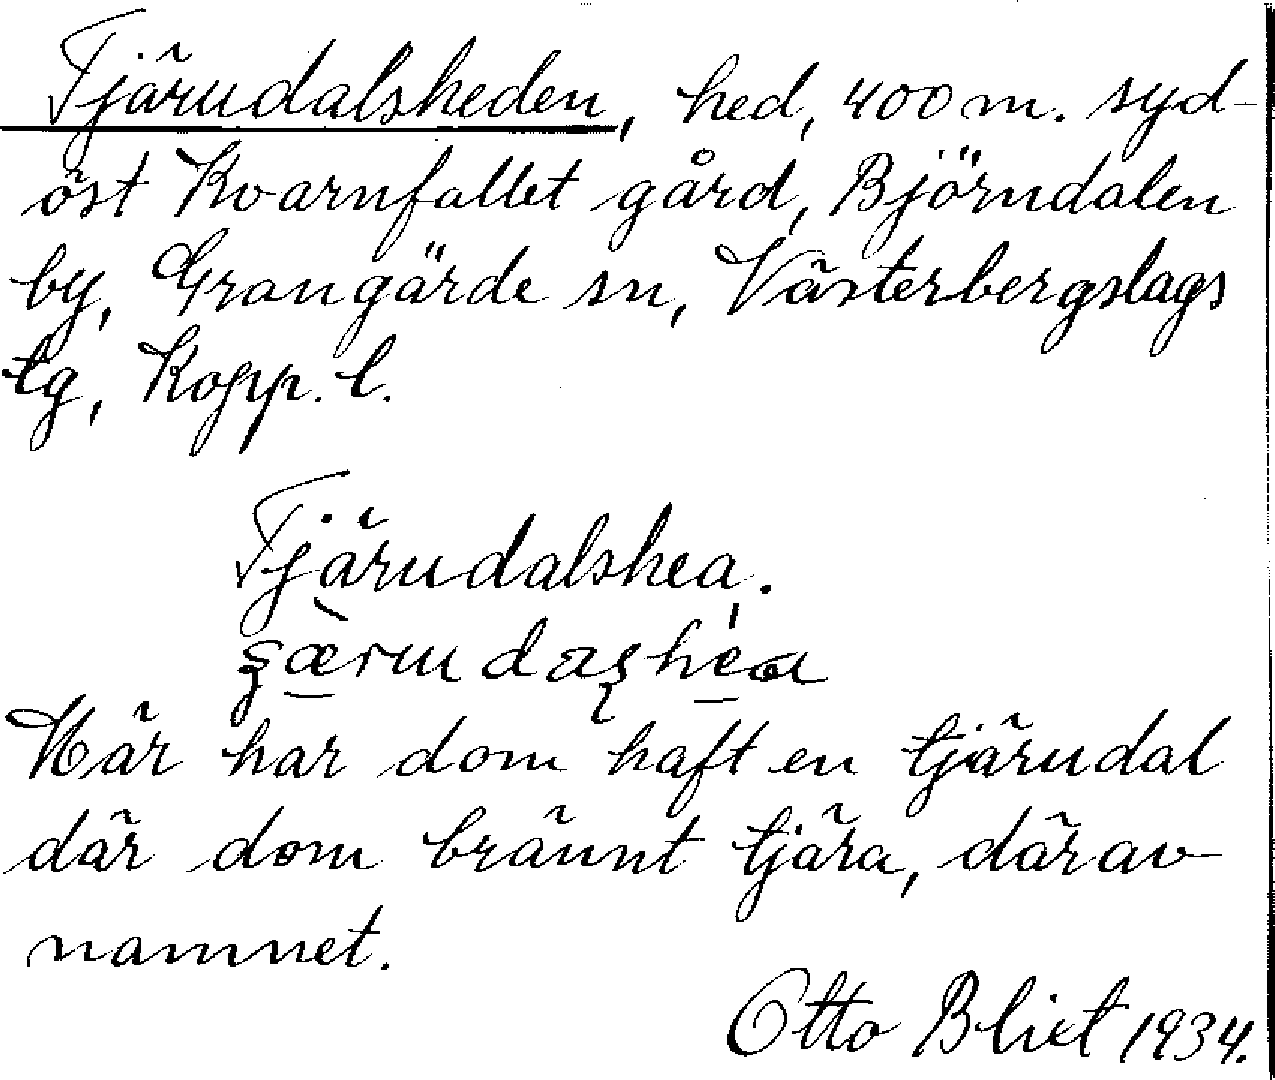 Tjärudalsheden, hed, 400 m. syd-
öst Kvarnfallet gård, Björndalen
by, Grangärde sn, Västerbergslags
tg, Kopp. l.
Tjärudalshea.
Här har dom haft en tjärudal
där dom bränt tjära, därav
namnet.
Otto Blixt 1934.